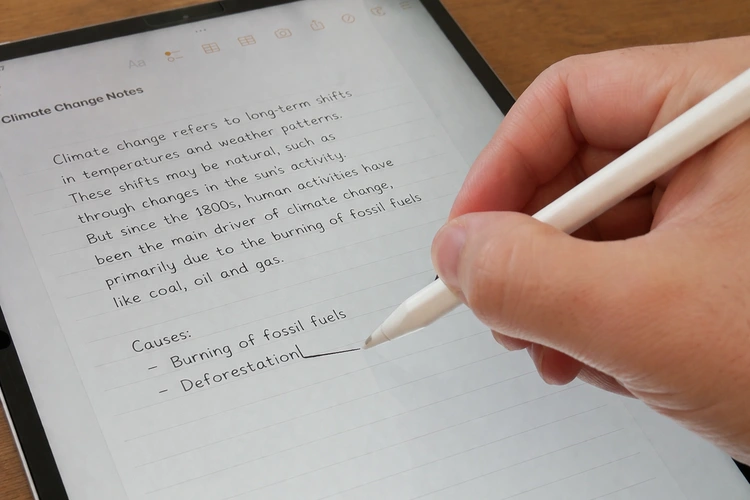 Aa
Climate Change Notes
Climate change refers to long-term shifts
in temperatures and weather patterns.
These shifts may be natural, such as
through changes in the sun's activity.
But since the 1800s, human activities have
been the main driver of climate change,
primarily due to the burning of fossil fuels
like coal, oil and gas.
Causes:
- Burning of fossil fuels
- Deforestation